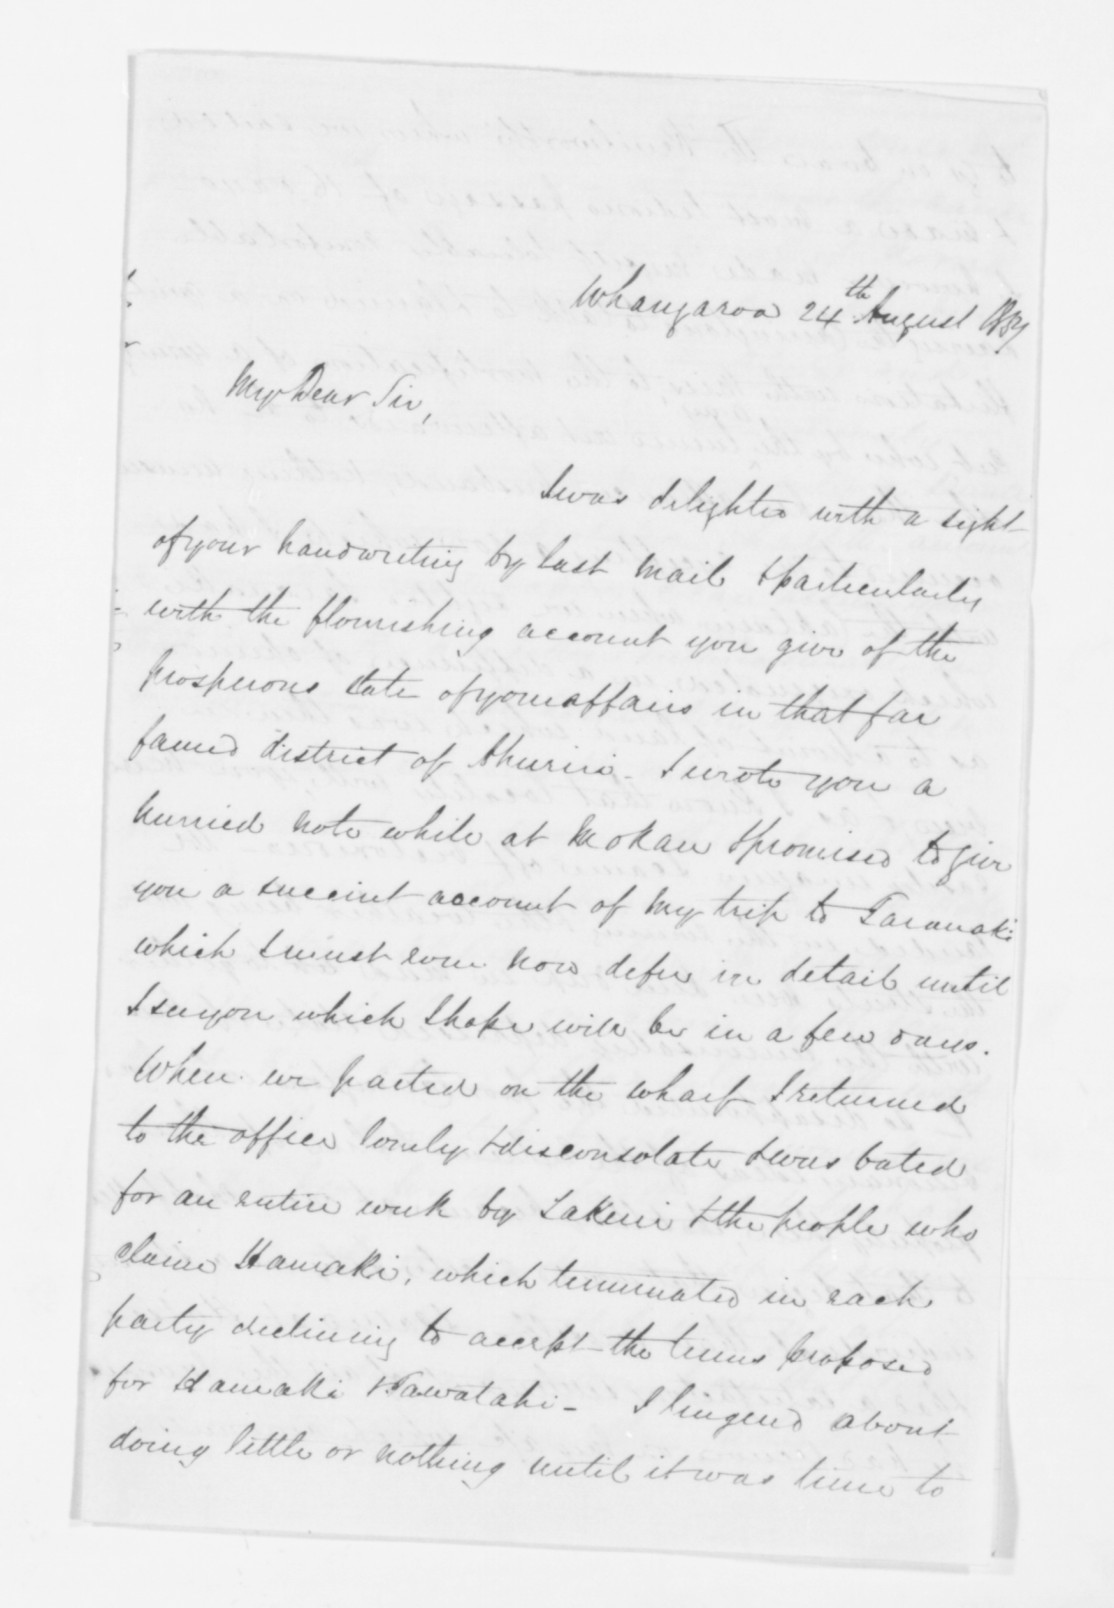 Whangaroa 24th August 1859
My Dear Sir,
I was delighted with a sight
of your handwriting by last mail & particularly
with the flourishing account you give of the
prosperous state of your affairs in that far
famed district of Ahuriri - I wrote you a
hurried note while at Mokau & promised to give
you a succint account of my trip to Taranaki
which I must even now defer in detail until
I see you which I hope will be in a few days.
When we parted on the wharf I returned
to the office lonely & disconsolate & was bated
for an entire week by Takerei & the people who
claim Hamaki, which terminated in each
party declining to accept the terms proposed
for Hamaki & Pawataki - I lingered about
doing little or nothing until it was time to